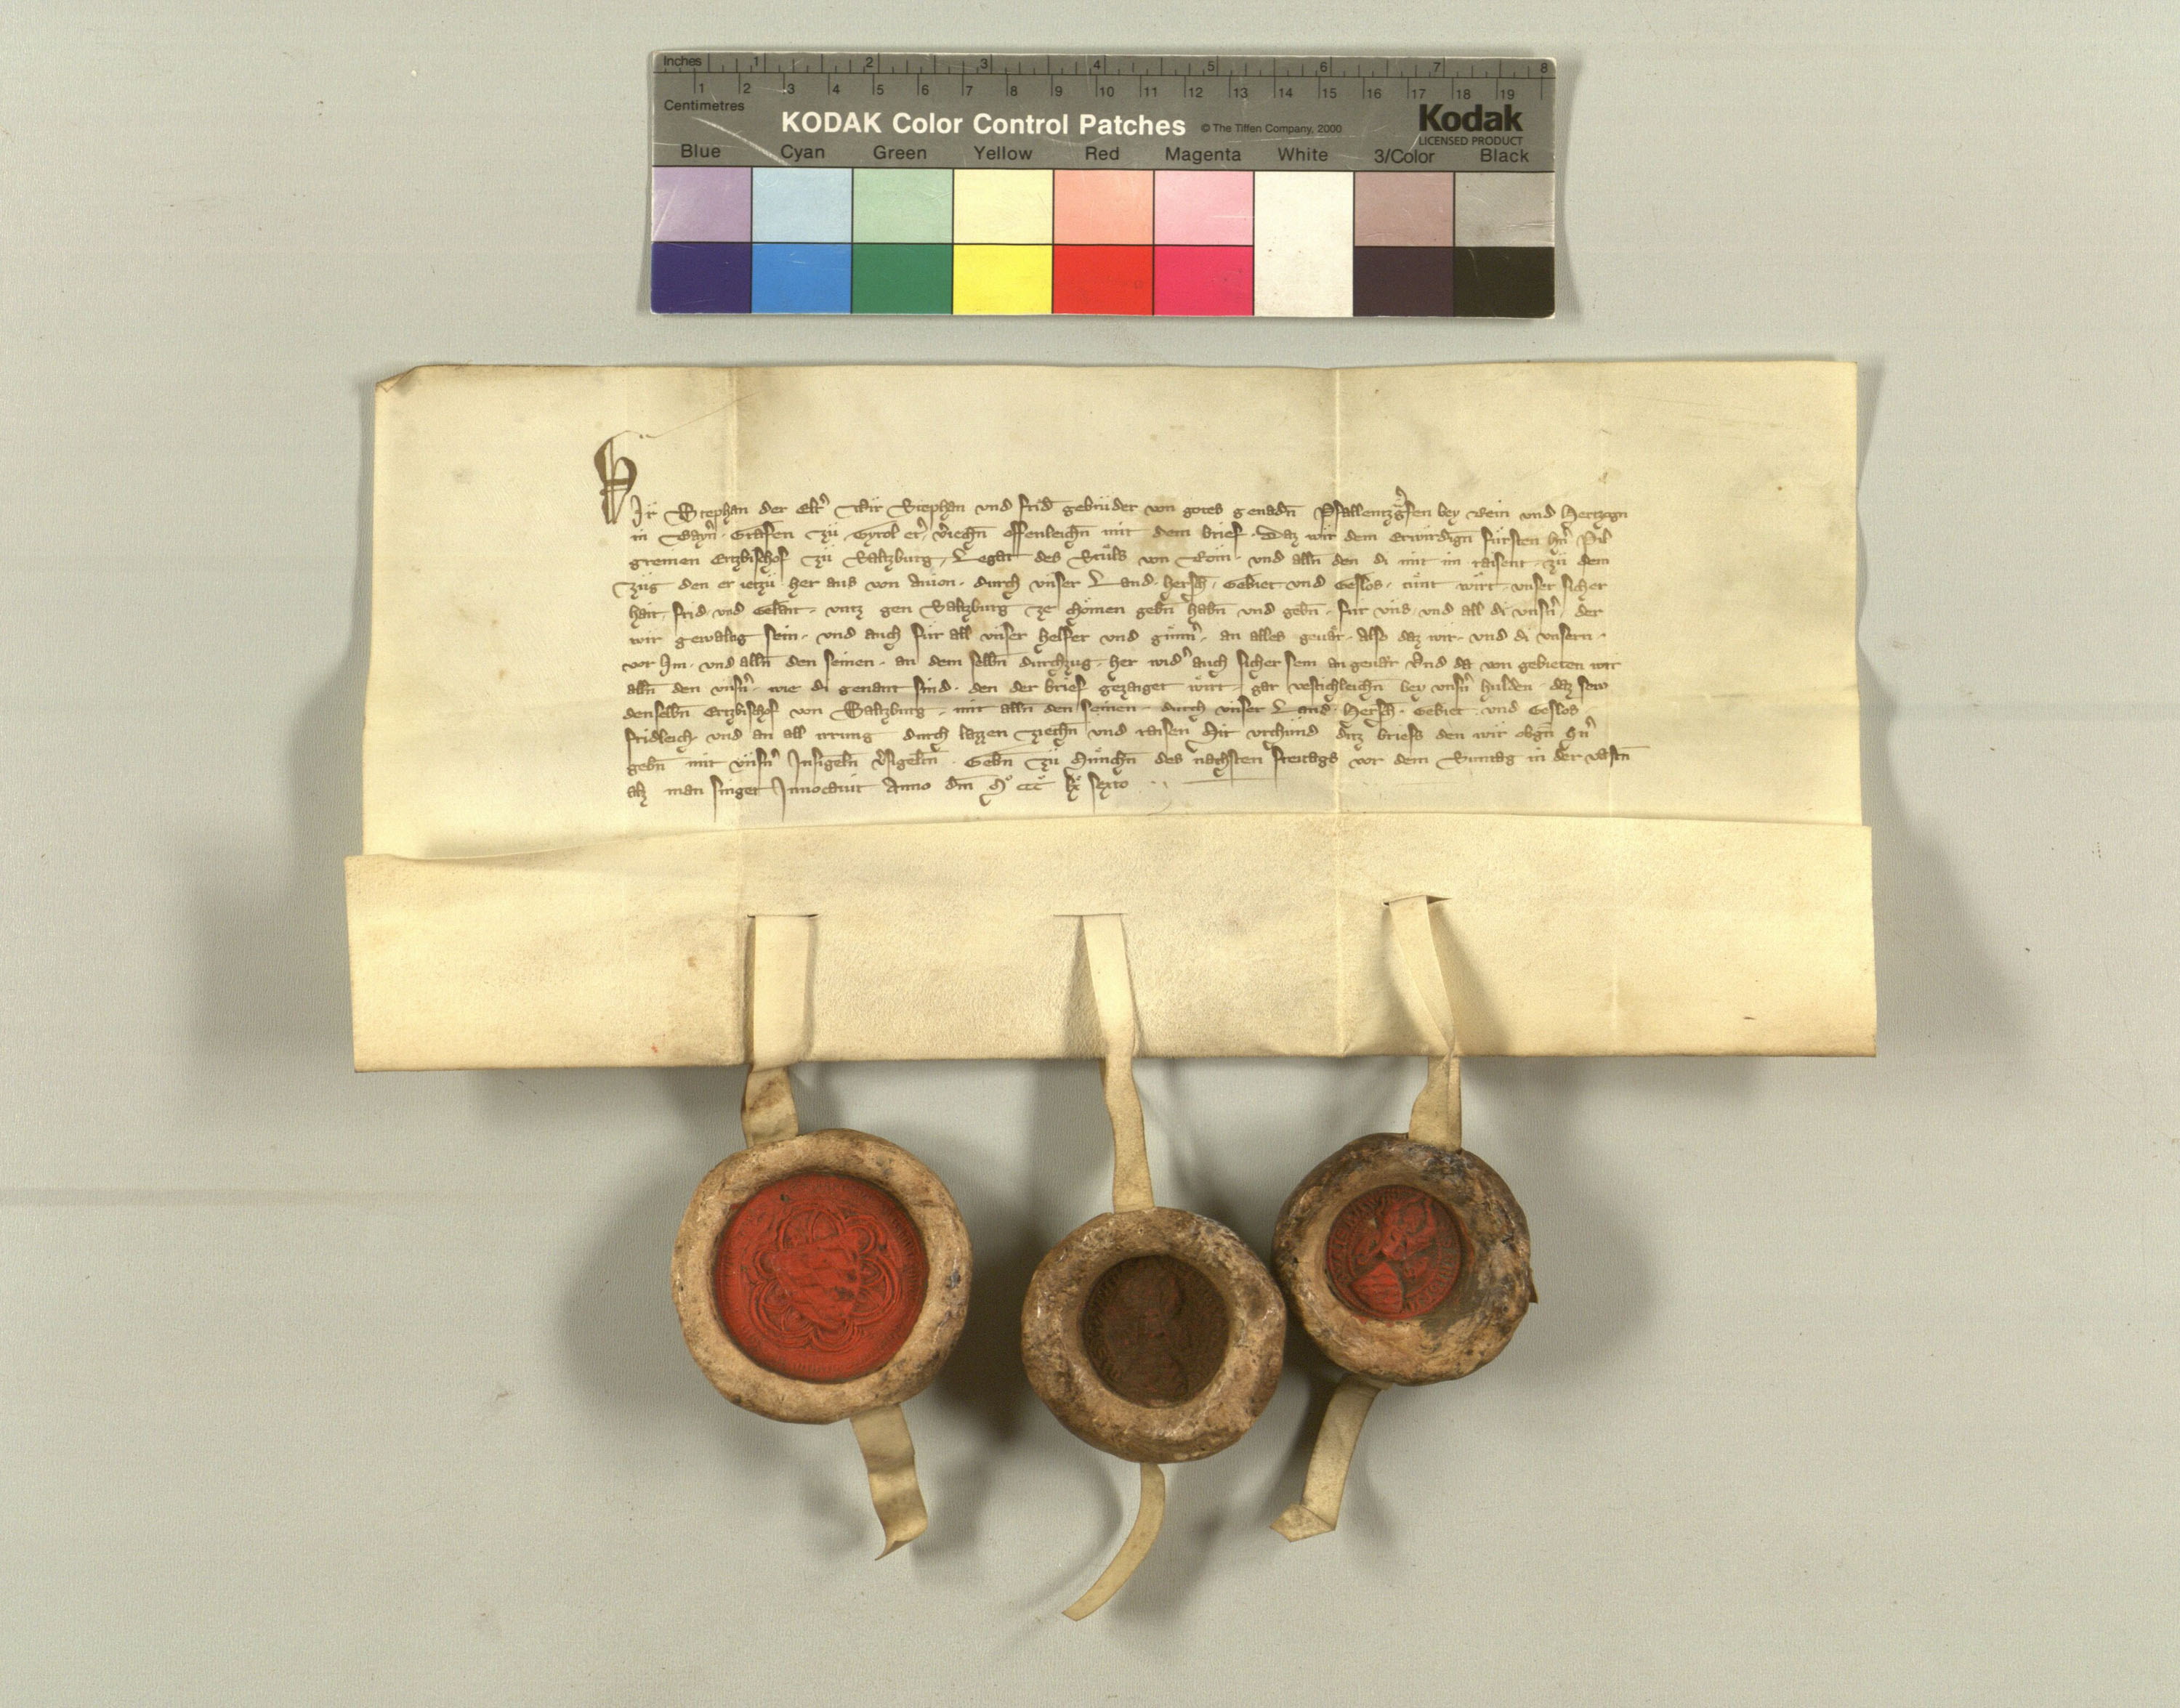 Inches 1 2 3 4 5 6 7 8
1 2 3 4 5 6 7 8 9 10 11 12 13 14 15 16 17 18 19
Centimetres
KODAK Color Control Patches © The Tiffen Company, 2000 Kodak
LICENSED PRODUCT
Blue Cyan Green Yellow Red Magenta White 3/Color Black
Wir Stephan der Elt̉ Wir Stephan und frid̄ gebruͤder von gotes genadn̄ Pfallentzg̉fen bey Rein und Hertzogn
in Bayn̉ · Grafen zuͤ Tyrol et̉ · v̉iechn̄ offenleichn̄ mit dem brief · Daz wir dem Erwirdign̄ fuͤrsten hn̉ Pil
gremen Ertzbischof zuͤ Saltzburg · Legat des Stuͦls von Rom · und alln̄ den di mit im raisent zuͤ dem
zug den er ietzu her aus von Auion · durch unser Land · Hersch̄ · Gebiet · und Geslos · tuͤnt wirt · unser sicher
hait · frid · und Gelait · untz gen Saltzburg ze choͤmen gebn̄ habn̄ und gebn̄ · fur uns · und all di unsn̉ · der
wir gewaltig sein · und auch fuͤr all unser helfer und guͤnn̉ · an alles geuar̉ · also daz wir · und di unsern ·
vor Im · und alln̄ den seinen · an dem selbn̄ durchzug · her wid̉ auch sicher sein an geuar̉ Und da von gebieten wir
alln̄ den unsn̉ · wie di genant sind · den der brief gezaiget wirt · gar vestichleichn̄ bey unsn̉ hulden · daz sew
denselbn̄ Ertzbischof von Saltzburg · mit alln̄ den seinen · durch unser Land · Hersch̄ · Gebiet · und Geslos
fridleich · und an all irrung durch lazzen ziechn̄ und raisen Mit urchuͤnd ditz briefs den wir obgn̄ hn̉
gebn̄ mit unsn̉ Insigeln̄ v̉sigeltn̄ · Gebn̄ zuͤ Muͤnchn̄ des nachsten freitags vor dem Suntag in der vastn̄
alz man singet Inuocauit Anno dm̄ Mͦ ccc̊ lxͦ sexto